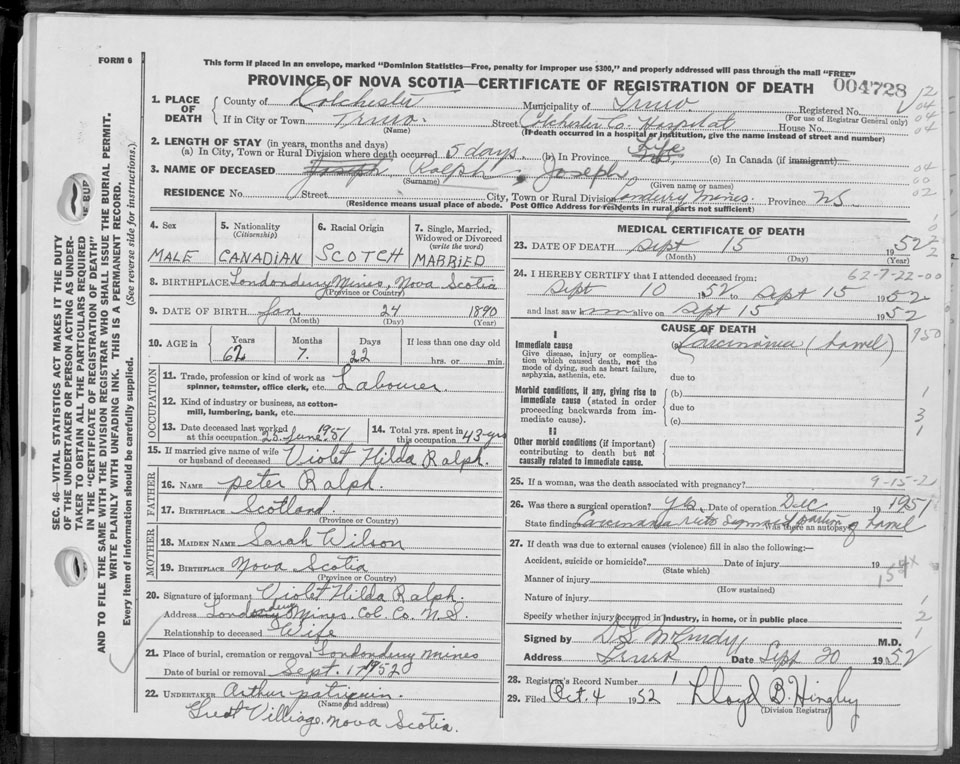 FORM 6
This form if placed in an envelope, marked "Dominion Statistics—Free, penalty for improper use $300," and properly addressed will pass through the mail "FREE"
PROVINCE OF NOVA SCOTIA—CERTIFICATE OF REGISTRATION OF DEATH
004728
SEC. 46—VITAL STATISTICS ACT MAKES IT THE DUTY
OF THE UNDERTAKER OR PERSON ACTING AS UNDER-
TAKER TO OBTAIN ALL THE PARTICULARS REQUIRED
IN THE "CERTIFICATE OF REGISTRATION OF DEATH"
AND TO FILE THE SAME WITH THE DIVISION REGISTRAR WHO SHALL ISSUE THE BURIAL PERMIT.
WRITE PLAINLY WITH UNFADING INK. THIS IS A PERMANENT RECORD.
Every item of information should be carefully supplied. (See reverse side for instructions.)
1. PLACE OF DEATH County of Kolchester Municipality of Truro Registered No.
(For use of Registrar General only)
If in City or Town Truro. Street Colchester Co. Hospital House No.
(Name) (If death occurred in a hospital or institution, give the name instead of street and number)
2. LENGTH OF STAY (in years, months and days)
(a) In City, Town or Rural Division where death occurred 5 days. (b) In Province Life (c) In Canada (if immigrant)
3. NAME OF DECEASED Joseph Ralph, Joseph
(Surname) (Given name or names)
RESIDENCE No. Street City, Town or Rural Division Londonderry Mines. Province NS.
(Residence means usual place of abode. Post Office Address for residents in rural parts not sufficient)
4. Sex MALE
5. Nationality (Citizenship) CANADIAN
6. Racial Origin SCOTCH
7. Single, Married, Widowed or Divorced (write the word) MARRIED
8. BIRTHPLACE Londonderry Mines, Nova Scotia
(Province or Country)
9. DATE OF BIRTH Jan 24 1890
(Month) (Day) (Year)
10. AGE in Years 62 Months 7. Days 22 If less than one day old hrs. or min.
OCCUPATION
11. Trade, profession or kind of work as spinner, teamster, office clerk, etc. Labourer.
12. Kind of industry or business, as cotton-mill, lumbering, bank, etc.
13. Date deceased last worked at this occupation 25 June 1951
14. Total yrs. spent in this occupation 43-yrs
15. If married give name of wife or husband of deceased Violet Hilda Ralph.
FATHER
16. NAME Peter Ralph.
17. BIRTHPLACE Scotland.
(Province or Country)
MOTHER
18. MAIDEN NAME Sarah Wilson
19. BIRTHPLACE Nova Scotia
(Province or Country)
20. Signature of informant Violet Hilda Ralph.
Address Londonderry Mines. Col. Co. N.S.
Relationship to deceased Wife
21. Place of burial, cremation or removal Londonderry Mines
Date of burial or removal Sept. 17 1952
22. UNDERTAKER Arthur Patriquin.
(Name and address)
Great Villiage. Nova Scotia.
MEDICAL CERTIFICATE OF DEATH
23. DATE OF DEATH Sept 15 1952
(Month) (Day) (Year)
24. I HEREBY CERTIFY that I attended deceased from: 62-7-22-00
Sept 10 1952 to Sept 15 1952
and last saw him alive on Sept 15 1952
CAUSE OF DEATH
I
Immediate cause Carcinoma (bowel)
Give disease, injury or complication which caused death, not the mode of dying, such as heart failure, asphyxia, asthenia, etc.
due to
Morbid conditions, if any, giving rise to immediate cause (stated in order proceeding backwards from immediate cause).
(b)
due to
(c)
II
Other morbid conditions (if important) contributing to death but not causally related to immediate cause.
25. If a woman, was the death associated with pregnancy?
26. Was there a surgical operation? Yes Date of operation Dec 1951
State findings Carcinoma recto sigmoid portion of bowel Was there an autopsy?
27. If death was due to external causes (violence) fill in also the following:—
Accident, suicide or homicide? Date of injury 19
(State which)
Manner of injury
(How sustained)
Nature of injury
Specify whether injury occurred in industry, in home, or in public place
Signed by M.D.
Address Truro Date Sept 20 1952
28. Registrar's Record Number 1
29. Filed Oct. 4 1952 Lloyd B. Hingley
(Division Registrar)